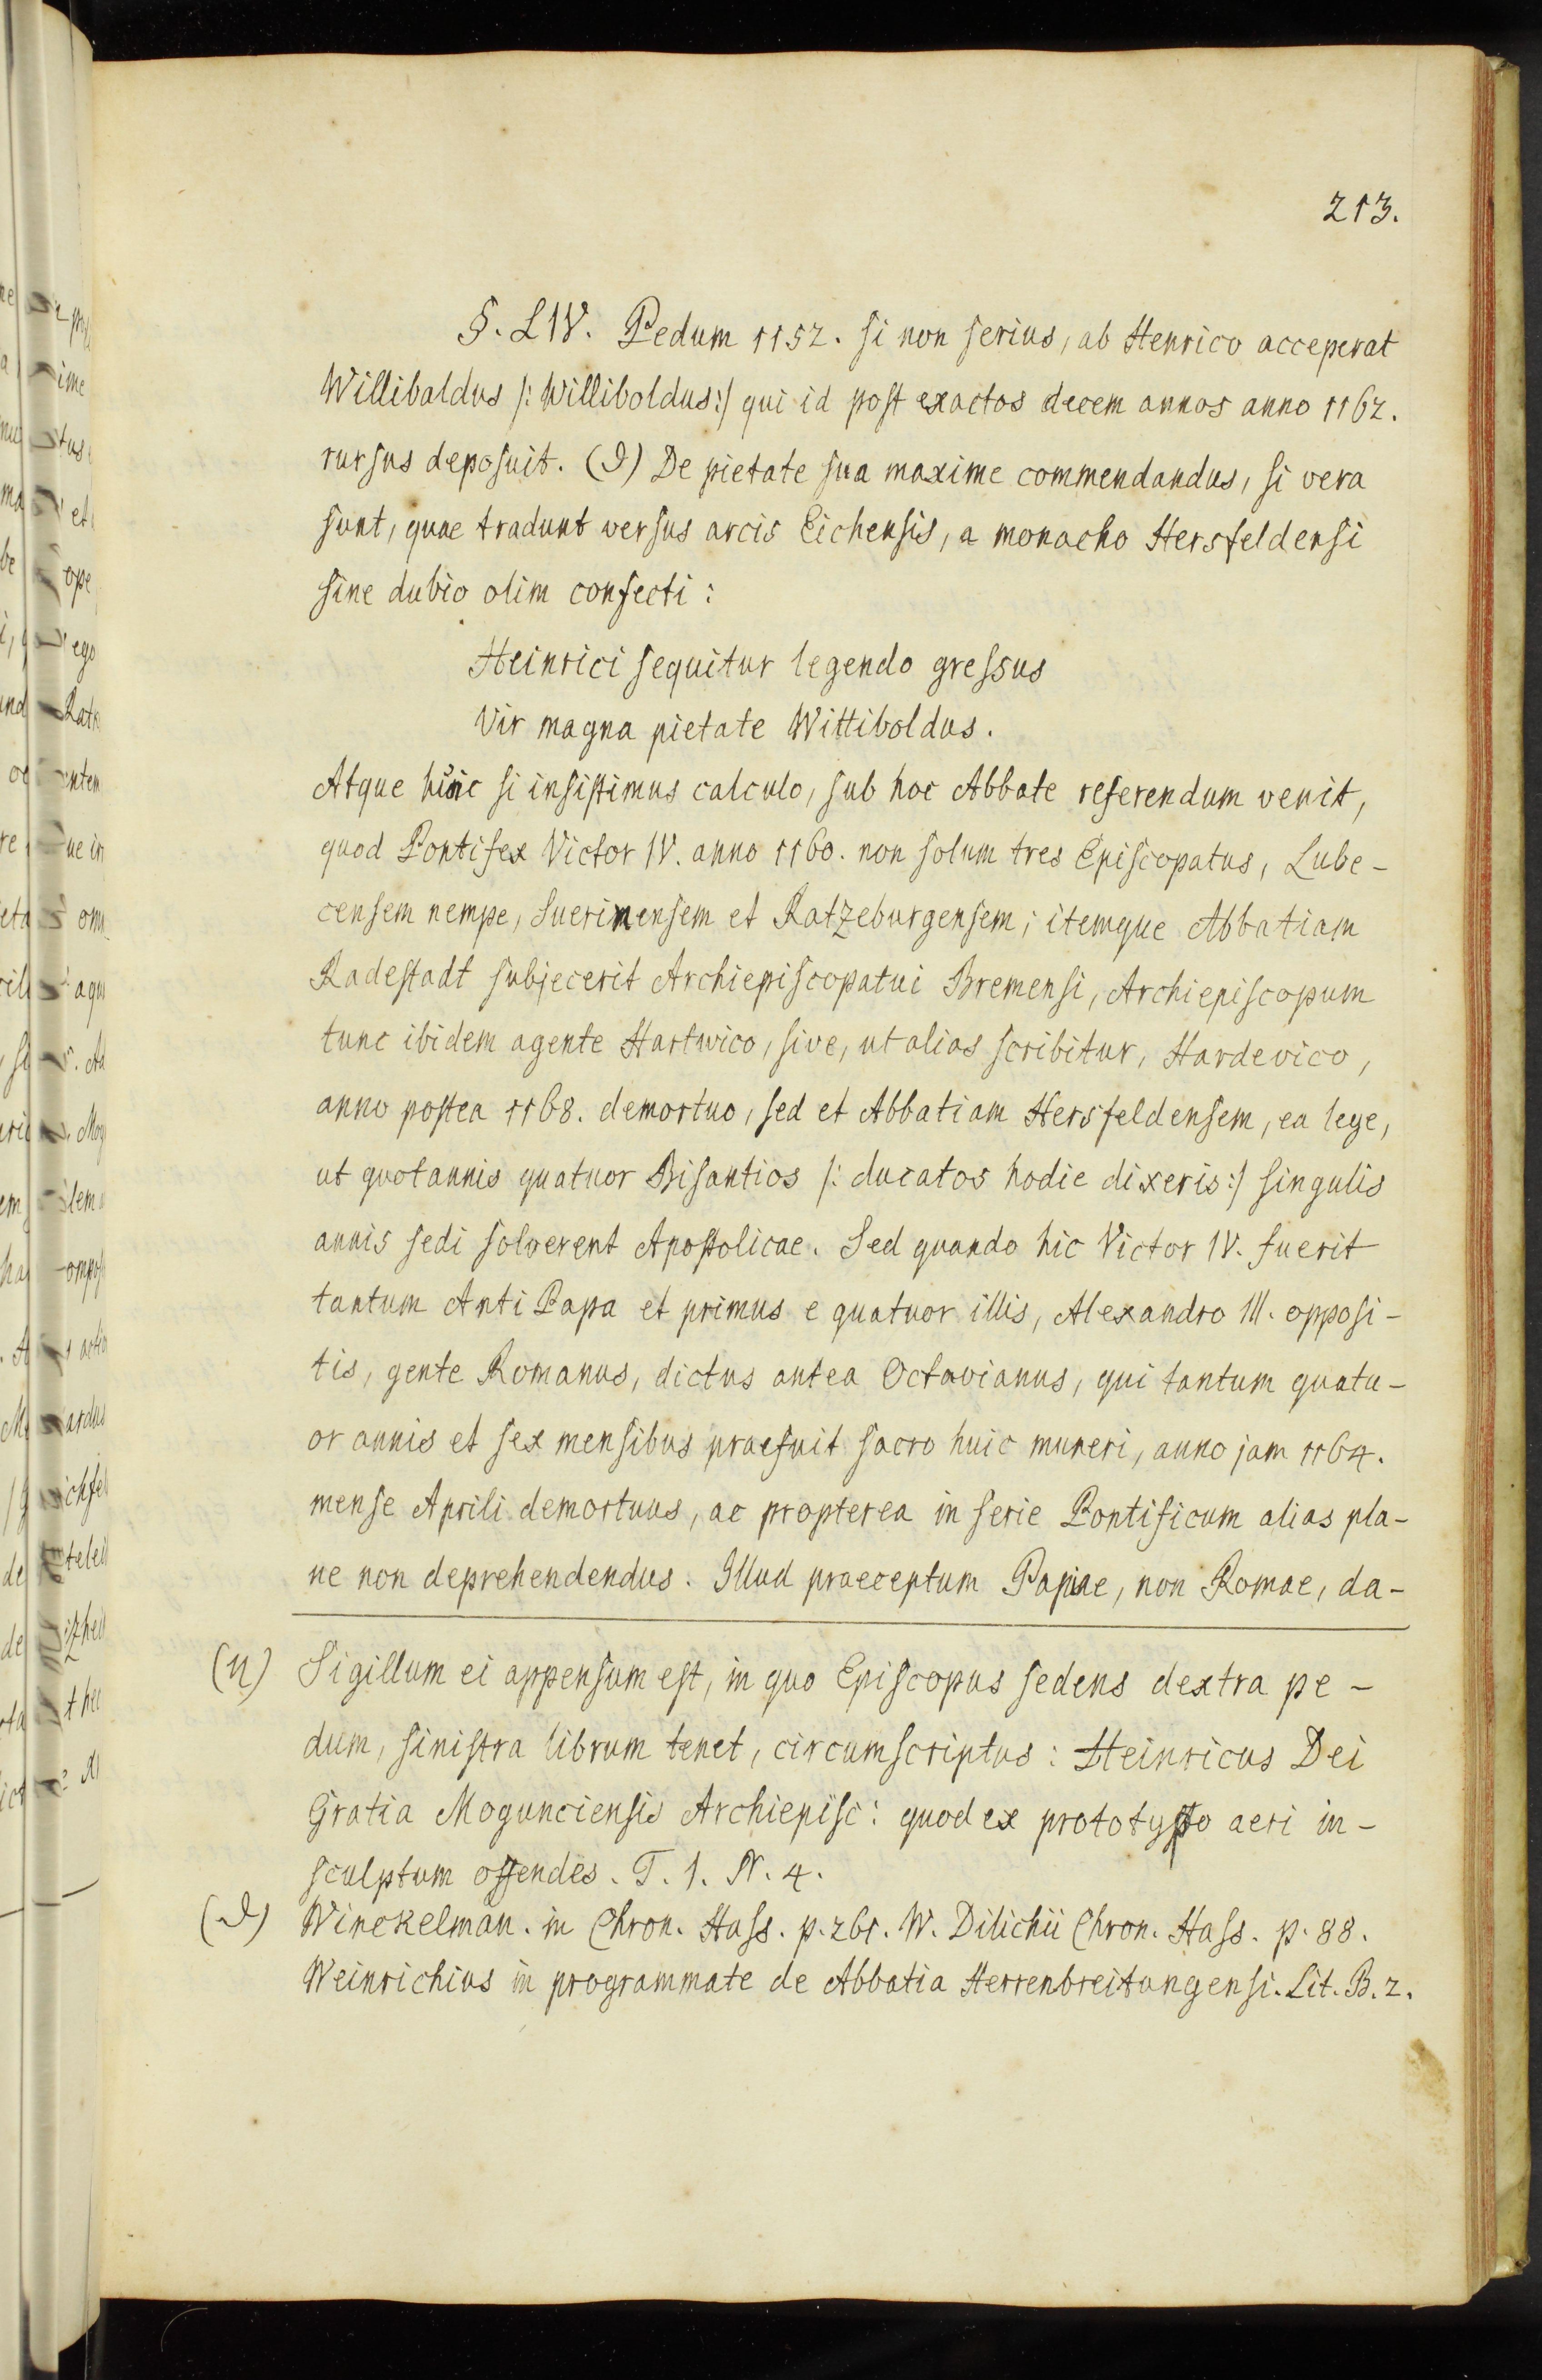 213.
§. LIV. Pedum 1152. si non serius, ab Henrico acceperat
Willibaldus /: Williboldus:/ qui id post exactos decem annos anno 1162.
rursus deposuit. (ϑ) De pietate sua maxime commendandus, si vera
sunt, quae tradunt versus arcis Eichensis, a monacho Hersfeldensi
sine dubio olim confecti:
Heinrici sequitur legendo gressus
Vir magna pietate Wittiboldus.
Atque huic si insistimus calculo, sub hoc Abbate referendum venit,
quod Pontifex Victor IV. anno 1160. non solum tres Episcopatus, Lube-
censem nempe, Suerinensem et Ratzeburgensem; itemque Abbatiam
Radestadt subjecerit Archiepiscopatui Bremensi, Archiepiscopum
tunc ibidem agente Hartwico, sive, ut alias scribitur, Hardevico,
anno postea 1168. demortuo, sed et Abbatiam Hersfeldensem, ea lege,
ut quotannis quatuor Bisantios /: ducatos hodie dixeris:/ singulis
annis sedi solverent Apostolicae. Sed quando hic Victor IV. fuerit
tantum Anti Papa et primus e quatuor illis, Alexandro III. opposi-
tis, gente Romanus, dictus antea Octavianus, qui tantum quatu-
or annis et sex mensibus praefuit sacro huic muneri, anno jam 1164.
mense Aprili demortuus, ac propterea in serie Pontificum alias pla-
ne non deprehendendus. Illud praeceptum Papiae, non Romae, da-
(η) Sigillum ei appensum est, in quo Episcopus sedens dextra pe-
dum, sinistra librum tenet, circumscriptus: Heinricus Dei
Gratia Mogunciensis Archiepisc: quod ex prototypo aeri in-
sculptum ostendes. T. 1. N. 4.
(ϑ) Winckelman̄. in Chron. Hass. p. 261. W. Dilichii Chron. Hass. p. 88.
Weinrichius in programmate de Abbatia Herrenbreitungensi. Lit. B. 2.